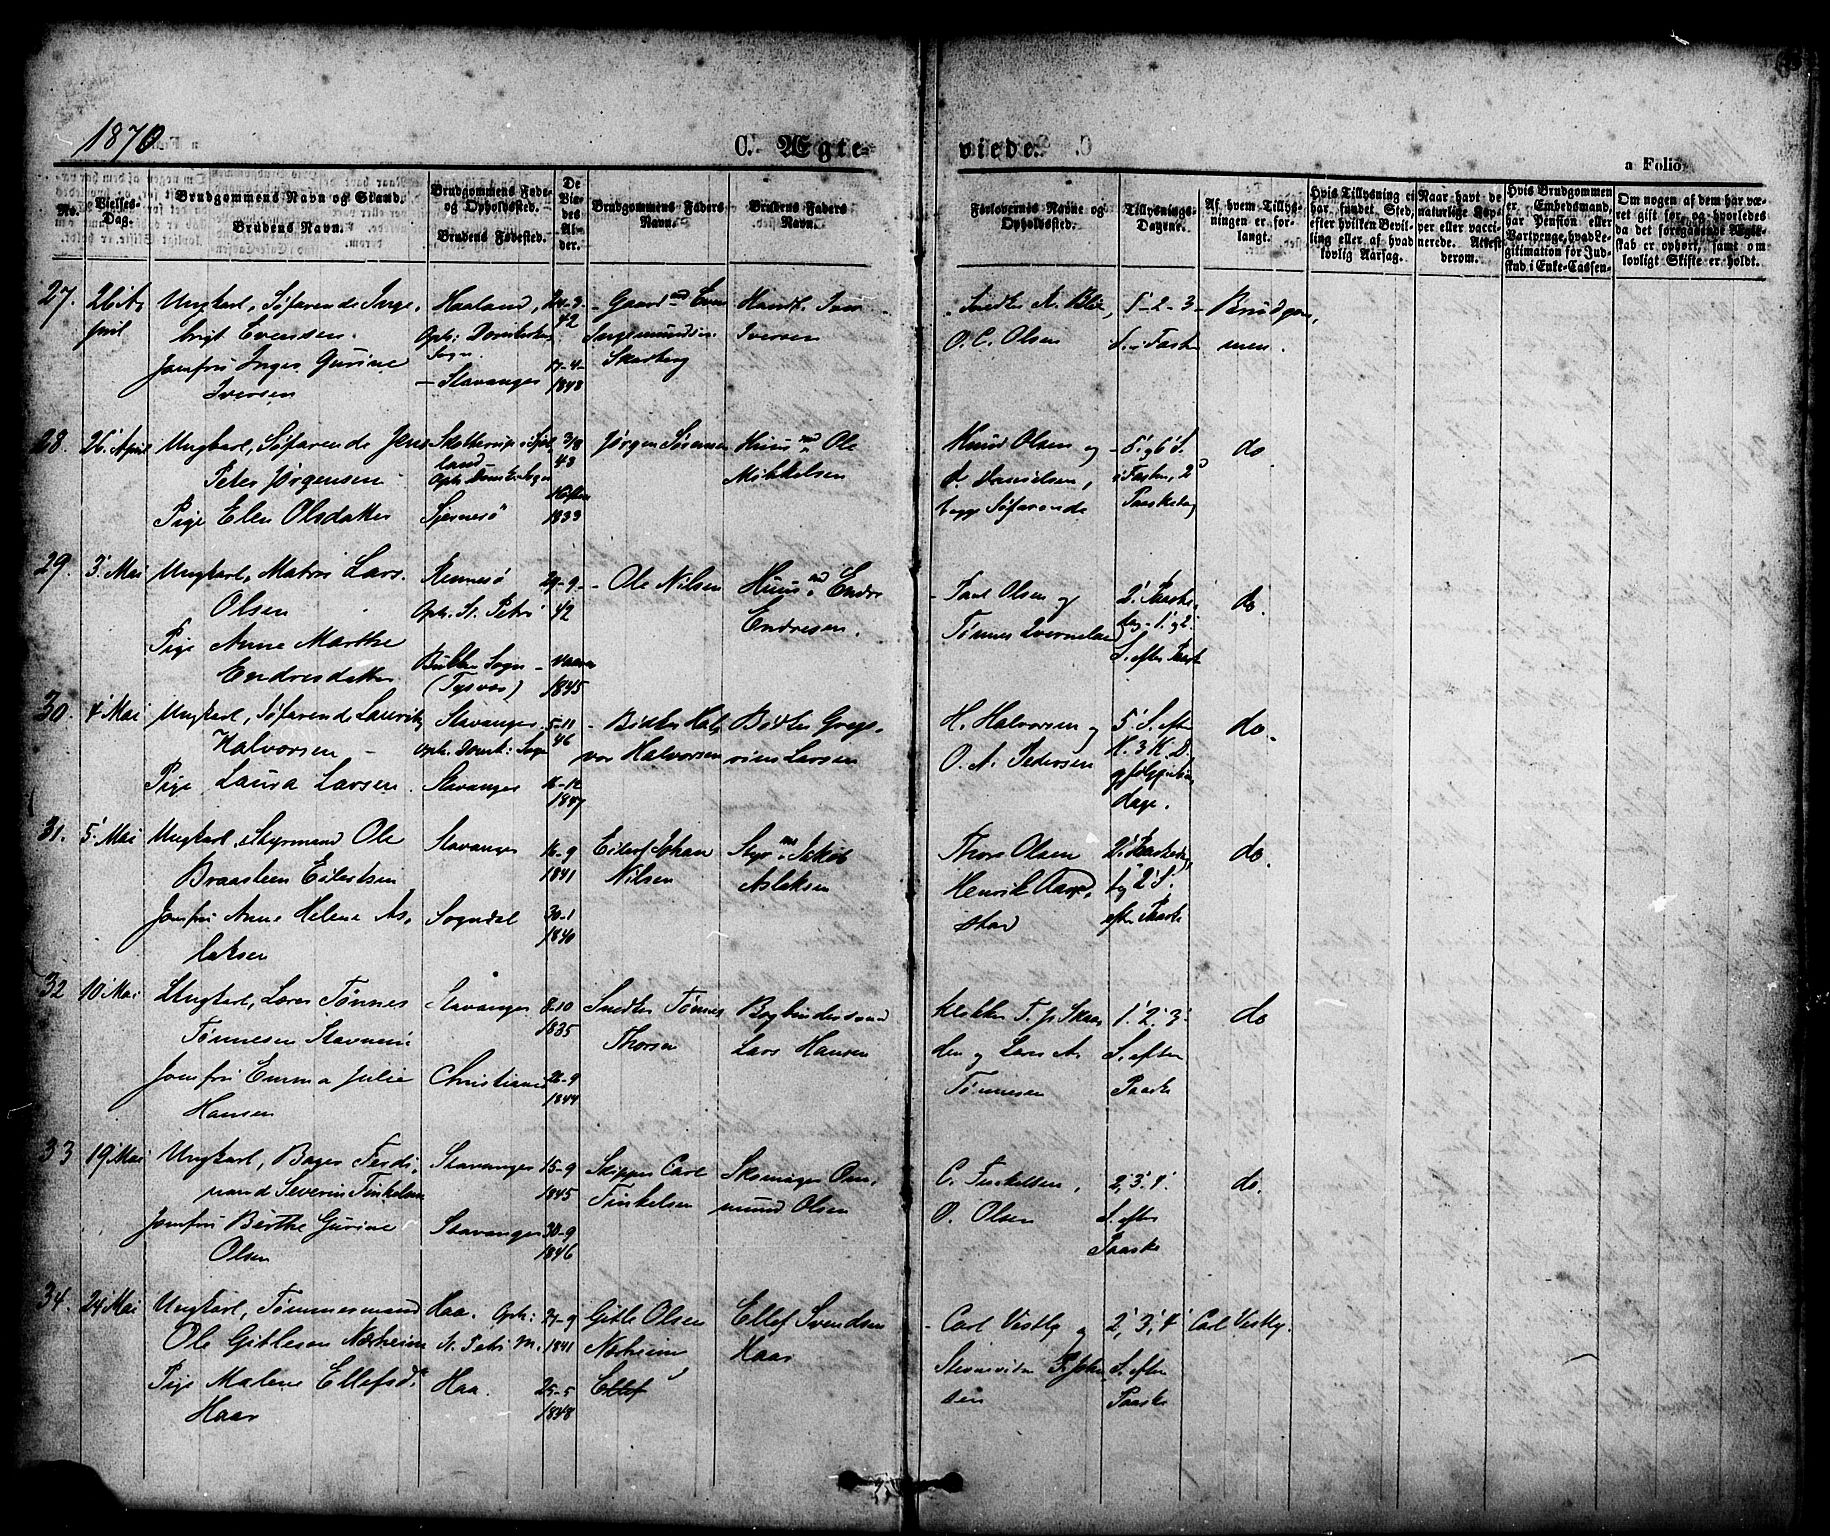 1870
C. Ægte-
viede.
a Folio
No.
Vielses-
Dag.
Brudgommens Navn og Stand.
Brudens Navn.
Brudgommens Føde-
og Opholdssted.
Brudens Fødested.
De
Vie-
des
Al-
der.
Brudgommens Faders
Navn.
Brudens Faders
Navn.
Forlovernes Navne og
Opholdssted.
Tillysnings-
Dagene.
Af hvem Tillys-
ningen er for-
langt.
Hvis Tillysning ei
har fundet Sted,
efter hvilken Bevil-
ling eller af hvad
lovlig Aarsag.
Naar havt de
naturlige Kop-
per eller vacci-
nerede. Attest
derom.
Hvis Brudgommen
er Embedsmand,
har Pension eller
Vartpenge, hvad Le-
gitimation for Ind-
skud i Enke-Cassen-
Om nogen af dem har væ-
ret gift før, og hvorledes
da det foregaaende Ægte-
skab er ophørt, samt om
lovligt Skifte er holdt.
27. 26 A-
pril
Ungkarl, Søfarende Inge-
brigt Evensen
Jomfru Inger Gurine
Iversen
Haaland,
Oph: Domkirkens
Sogn.
- Stavanger
42
17-4-
1848
- Gaardmd Even
Ingemundsen
Skarberg
Handl. Iver
Iversen
- Snedker A.
O. C. Olsen
1-2-3-
S. i Faste
Brudgom-
men.
28. 26' April
Ungkarl, Søfarende Jens
Peter Jørgensen
Pige Elen Olsdatter
land
Oph: Domk. Sogn
Sjernerö
3/8
43
1833
Jørgen Sørensen
Huusmd Ole
Mikkelsen
Knud Olsen og
d. Danielsen,
begge Søfarende
- 5' og 6' S.
i Fasten, 2'
Paaskedag
do
29. 3' Mai
Ungkarl, Matros Lars
Olsen
Pige Anne Marthe
Endresdatter
Rennesö
Oph. St. Petri
Sogn -
(Tysvær)
29-9-
42
1845
- Ole Nilsen
Huusmd Endre
Endresen.
- Paul Olsen og
Tønnes
2' Paaske-
dag - 1' og 2'
S. efter Paaske
do.
30. 4' Mai
Ungkarl, Søfarende Lauritz
Halvorsen -
Pige Laura Larsen
Stavanger
Oph. Domk: Sogn
Stavanger
5-11
46
16-12
1847
- Bødker Hal-
vor Halvorsen
Bødker Greg-
rius Larsen
H. Halvorsen og
O. A. Pedersen
5' S. efter
H. 3 K. D.
dage.
do.
31. 5' Mai
Ungkarl, Styrmand Ole
Braasteen Eilertsen
Jomfru Anne Helene As-
laksen
Stavanger
Sogndal
16-9
1841
30-1
1840
Eilert Johan
Nilsen
Styrmd Jakob
Aslaksen
Thore Olsen
Henrik
stad
2' Paaskedag,
og 2' S.
efter Paaske
do.
32 10' Mai
Ungkarl, Lærer Tønnes
Tønnesen Stavnem
Jomfru Emma Julie
Hansen
Stavanger
Christiania
8-10
1835
22-9
1844
Snedker Tønnes
Thorsen
Bogbindersvend
Lars Hansen
Klokker T. P. Skaa-
den og Lars A.
Tønnesen
1' 2' 3'
S. efter
Paaske
do
33 19' Mai
Ungkarl, Bager Ferdi-
nand Severin Finkelsen
Jomfru Birthe Gurine
Olsen
Stavanger
Stavanger
15-9
1845
30-9
1846
Skipper Carl
Finkelsen
Skomager Om-
mund Olsen
C. Finkelsen,
O. Olsen
2', 3', 4'.
S. efter
Paaske
do.
34. 24' Mai
Ungkarl, Tømmermand
Ole Gitlesen Nærheim
Pige Malene Ellefsd:
Haar
Haa. Oph:
St. Petri M.
Haa.
27-9
1841
25-5
1848
Gitle Olsen
Nærheim
Ellef
Ellef Svendsen
Haar
- Carl Vestly og
sen
2', 3', 4'
S. efter
Paaske
Carl Vestly.